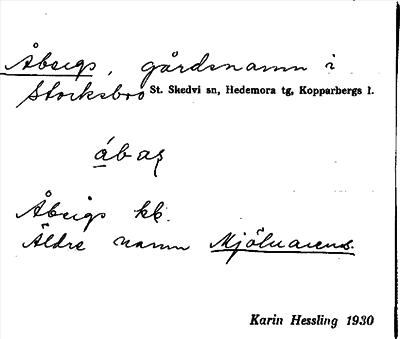 Åbergs, gårdsnamn i
Storksbro St. Skedvi sn, Hedemora tg, Kopparbergs l.
ábaș
Åbergs kk.
Äldre namn Mjölnarens.
Karin Hessling 1930